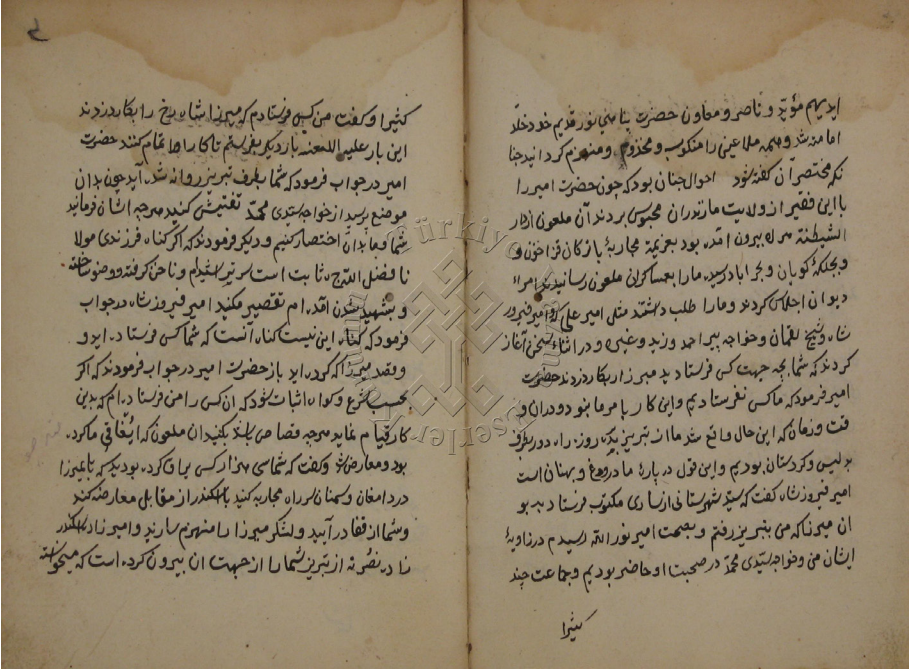 ایدیهم مؤید و ناصر و معاون حضرت پناهی نور قدیم خود خلد
امامه شد و همه ملاعین را منکوب و مخذوم و منهزم کردانید چنا
نکه مختصر آن کفته شود احوال چنان بود که چون حضرت امیر را
با این فقیر از ولایت مازندران محبوس بردند آن ملعون ازدار
الشیطنه بیرون آمده بود بعزیمة محاربهٔ بازکان قراخون و
و بجلکهٔ کوبان و بجراباد رسید ما را بعساکر آن ملعون رسانیدند امراء
دیوان اجلاس کردند و ما را طلب داشتند مثل امیر علی و امیر فیروز
شاه و شیخ لقمان و خواجه پیر احمد و زید و غیره و در اثناء سخن آغاز
کردند که شما بچه جهت کس فرستادید میرزا را بکارد زدند حضرت
امیر فرمود که ما کس نفرستادیم و این کار بامر ما نبود و در آن و
قت و زمان که این حال واقع شد ما از تبریز بده روزه راه دور بطرف
بدلیس و کردستان بودیم و این قول در بارهٔ ما دروغ و بهتانی است
امیر فیروز شاه کفت که سید شهرستانی از ساری مکتوب فرستاده بو
آن میرنا که من بتبریز رفتم و بصحبت امیر نور الله رسیدم در زاویهٔ
ایشان من و خواجه سیدی محمد در صحبت او حاضر بودیم و جماعت چند
کثیرا
کثیرا و کفت من کس فرستادم که میرزا شاه رخ را بکارد زدند
این بار علیه اللعنه بار دیکر بفرستم تا کار او را تمام کنند حضرت
امیر در جواب فرمود که شما بطرف تبریز روانه شد آید چون بدان
موضع برسید از خواجه سیدی محمد تفتیش کنید هرچه ایشان فرمایند
شما و ما بدان اختصار کنیم و دیکر فرمودند که اکر کناه فرزندی مولا
نا فضل الله ثابت است سر تیر استاده ام و ناخن کرفته و وضو ساخته
و بشهید شدن آمده ام تقصیر مکنید امیر فیروز شاه در جواب
فرمود که کناه این نیست کناه آنست که شما کس فرستاده اید و
وقصد میرزا کرده اید باز حضرت امیر در جواب فرمودند که اکر
بحسب شرع و کواه اثبات شود که آن کس را من فرستاده ام که بدین
کار قیام نماید هرچه قصاص باشد بکنید آن ملعون که ایغاقی ما کرده
بود و معارض شد و کفت که شما سی هزار کس یراق کرده بودید که با میرزا
در دامغان و سمنان سر راه محاربه کنید با اسکندر از مقابل معارضه کند
و شما از قفا در آیید و لشکر میرزا را منهزم سازید و امیرزاده اسکندر
زاده نصرته از تبریز شما را از جهت آن بیرون کرده است که میخواسته